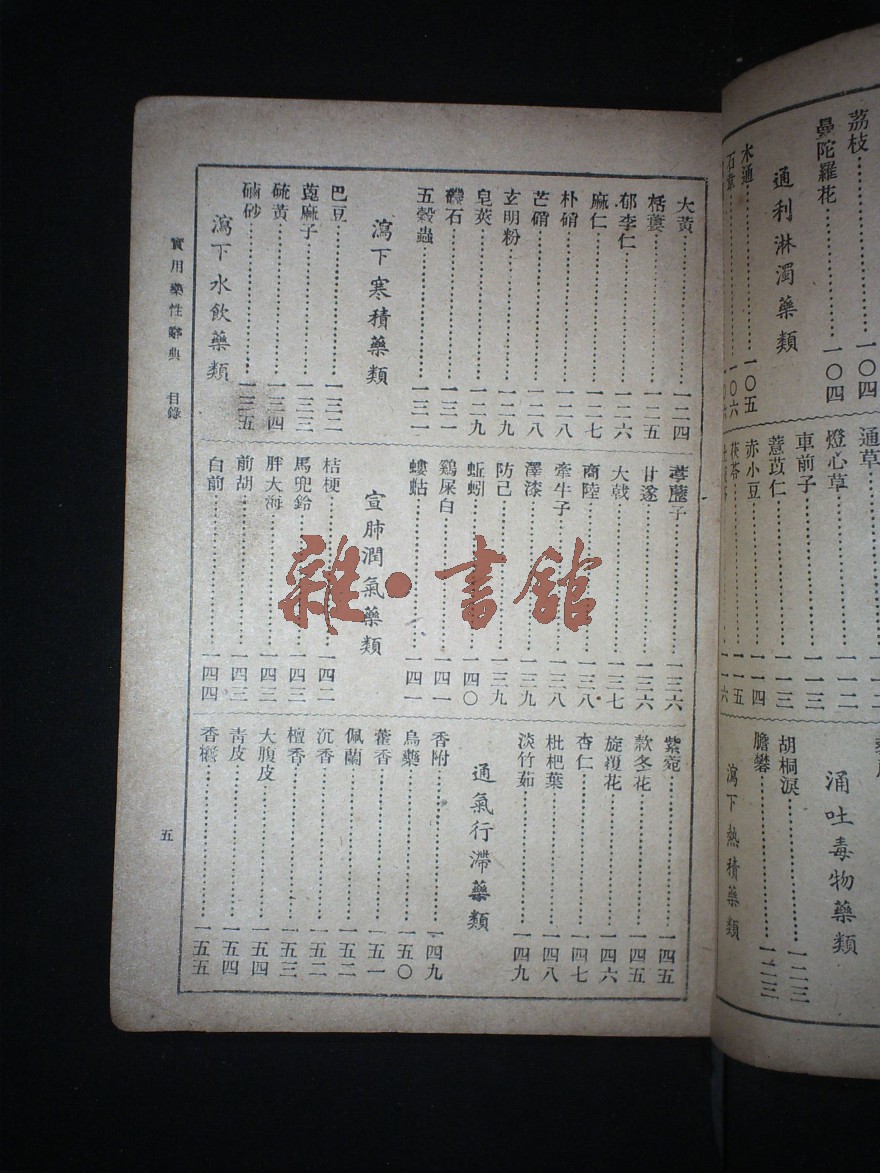 荔枝……一〇四
曼陀羅花……一〇四
通利淋濁藥類
木通……一〇五
石韋……一〇六
通草
燈心草……一一二
車前子……一一三
薏苡仁……一一三
赤小豆……一一四
茯苓……一一五
涌吐毒物藥類
胡桐淚……一二三
膽礬……一二三
瀉下熱積藥類
大黃……一二四
栝蔞……一二五
郁李仁……一二六
麻仁……一二七
朴硝……一二八
芒硝……一二八
玄明粉……一二九
皂莢……一二九
礞石……一三一
五穀蟲……一三一
瀉下寒積藥類
巴豆……一三二
蓖麻子……一三三
硫黃……一三四
硇砂……一三五
瀉下水飲藥類
葶藶子……一三六
甘遂……一三六
大戟……一三七
商陸……一三八
牽牛子……一三八
澤漆……一三九
防己……一三九
蚯蚓……一四〇
鷄屎白……一四一
螻蛄……一四一
宣肺潤氣藥類
桔梗……一四二
馬兜鈴……一四三
胖大海……一四三
前胡……一四三
白前……一四四
紫菀……一四五
款冬花……一四五
旋覆花……一四六
杏仁……一四七
枇杷葉……一四八
淡竹茹……一四九
通氣行滯藥類
香附……一四九
烏藥……一五〇
藿香……一五一
佩蘭……一五二
沉香……一五二
檀香……一五三
大腹皮……一五四
靑皮……一五四
香櫞……一五五
實用藥性辭典 目錄
五
雜·書館